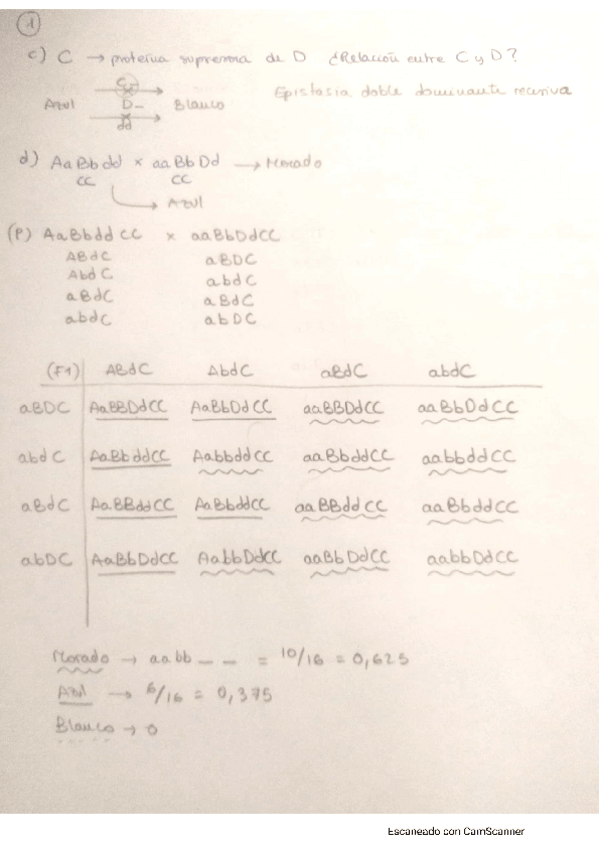 1
c) C → proteína supresora de D ¿Relación entre C y D?
C_
Azul D_ Blanco Epistasia doble dominante recesiva
dd
d) AaBbdd x aaBbDd → Morado
CC CC
→ Azul
(P) AaBbddCC x aaBbDdCC
ABdC aBDC
AbdC abdC
aBdC aBdC
abdC abDC
(F1) ABdC AbdC aBdC abdC
aBDC AaBBDdCC AaBbDdCC aaBBDdCC aaBbDdCC
abdC AaBbddCC AabbddCC aaBbddCC aabbddCC
aBdC AaBBddCC AaBbddCC aaBBddCC aaBbddCC
abDC AaBbDdCC AabbDdCC aaBbDdCC aabbDdCC
Morado → aabb _ _ = 10/16 = 0,625
Azul → 6/16 = 0,375
Blanco → 0
Escaneado con CamScanner